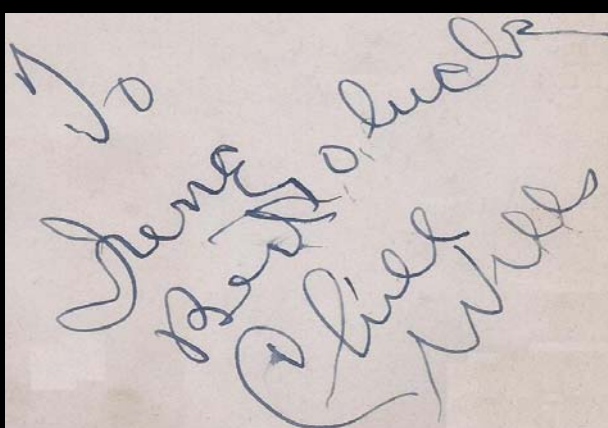 To
Irene
Best o luck
Chill Wills